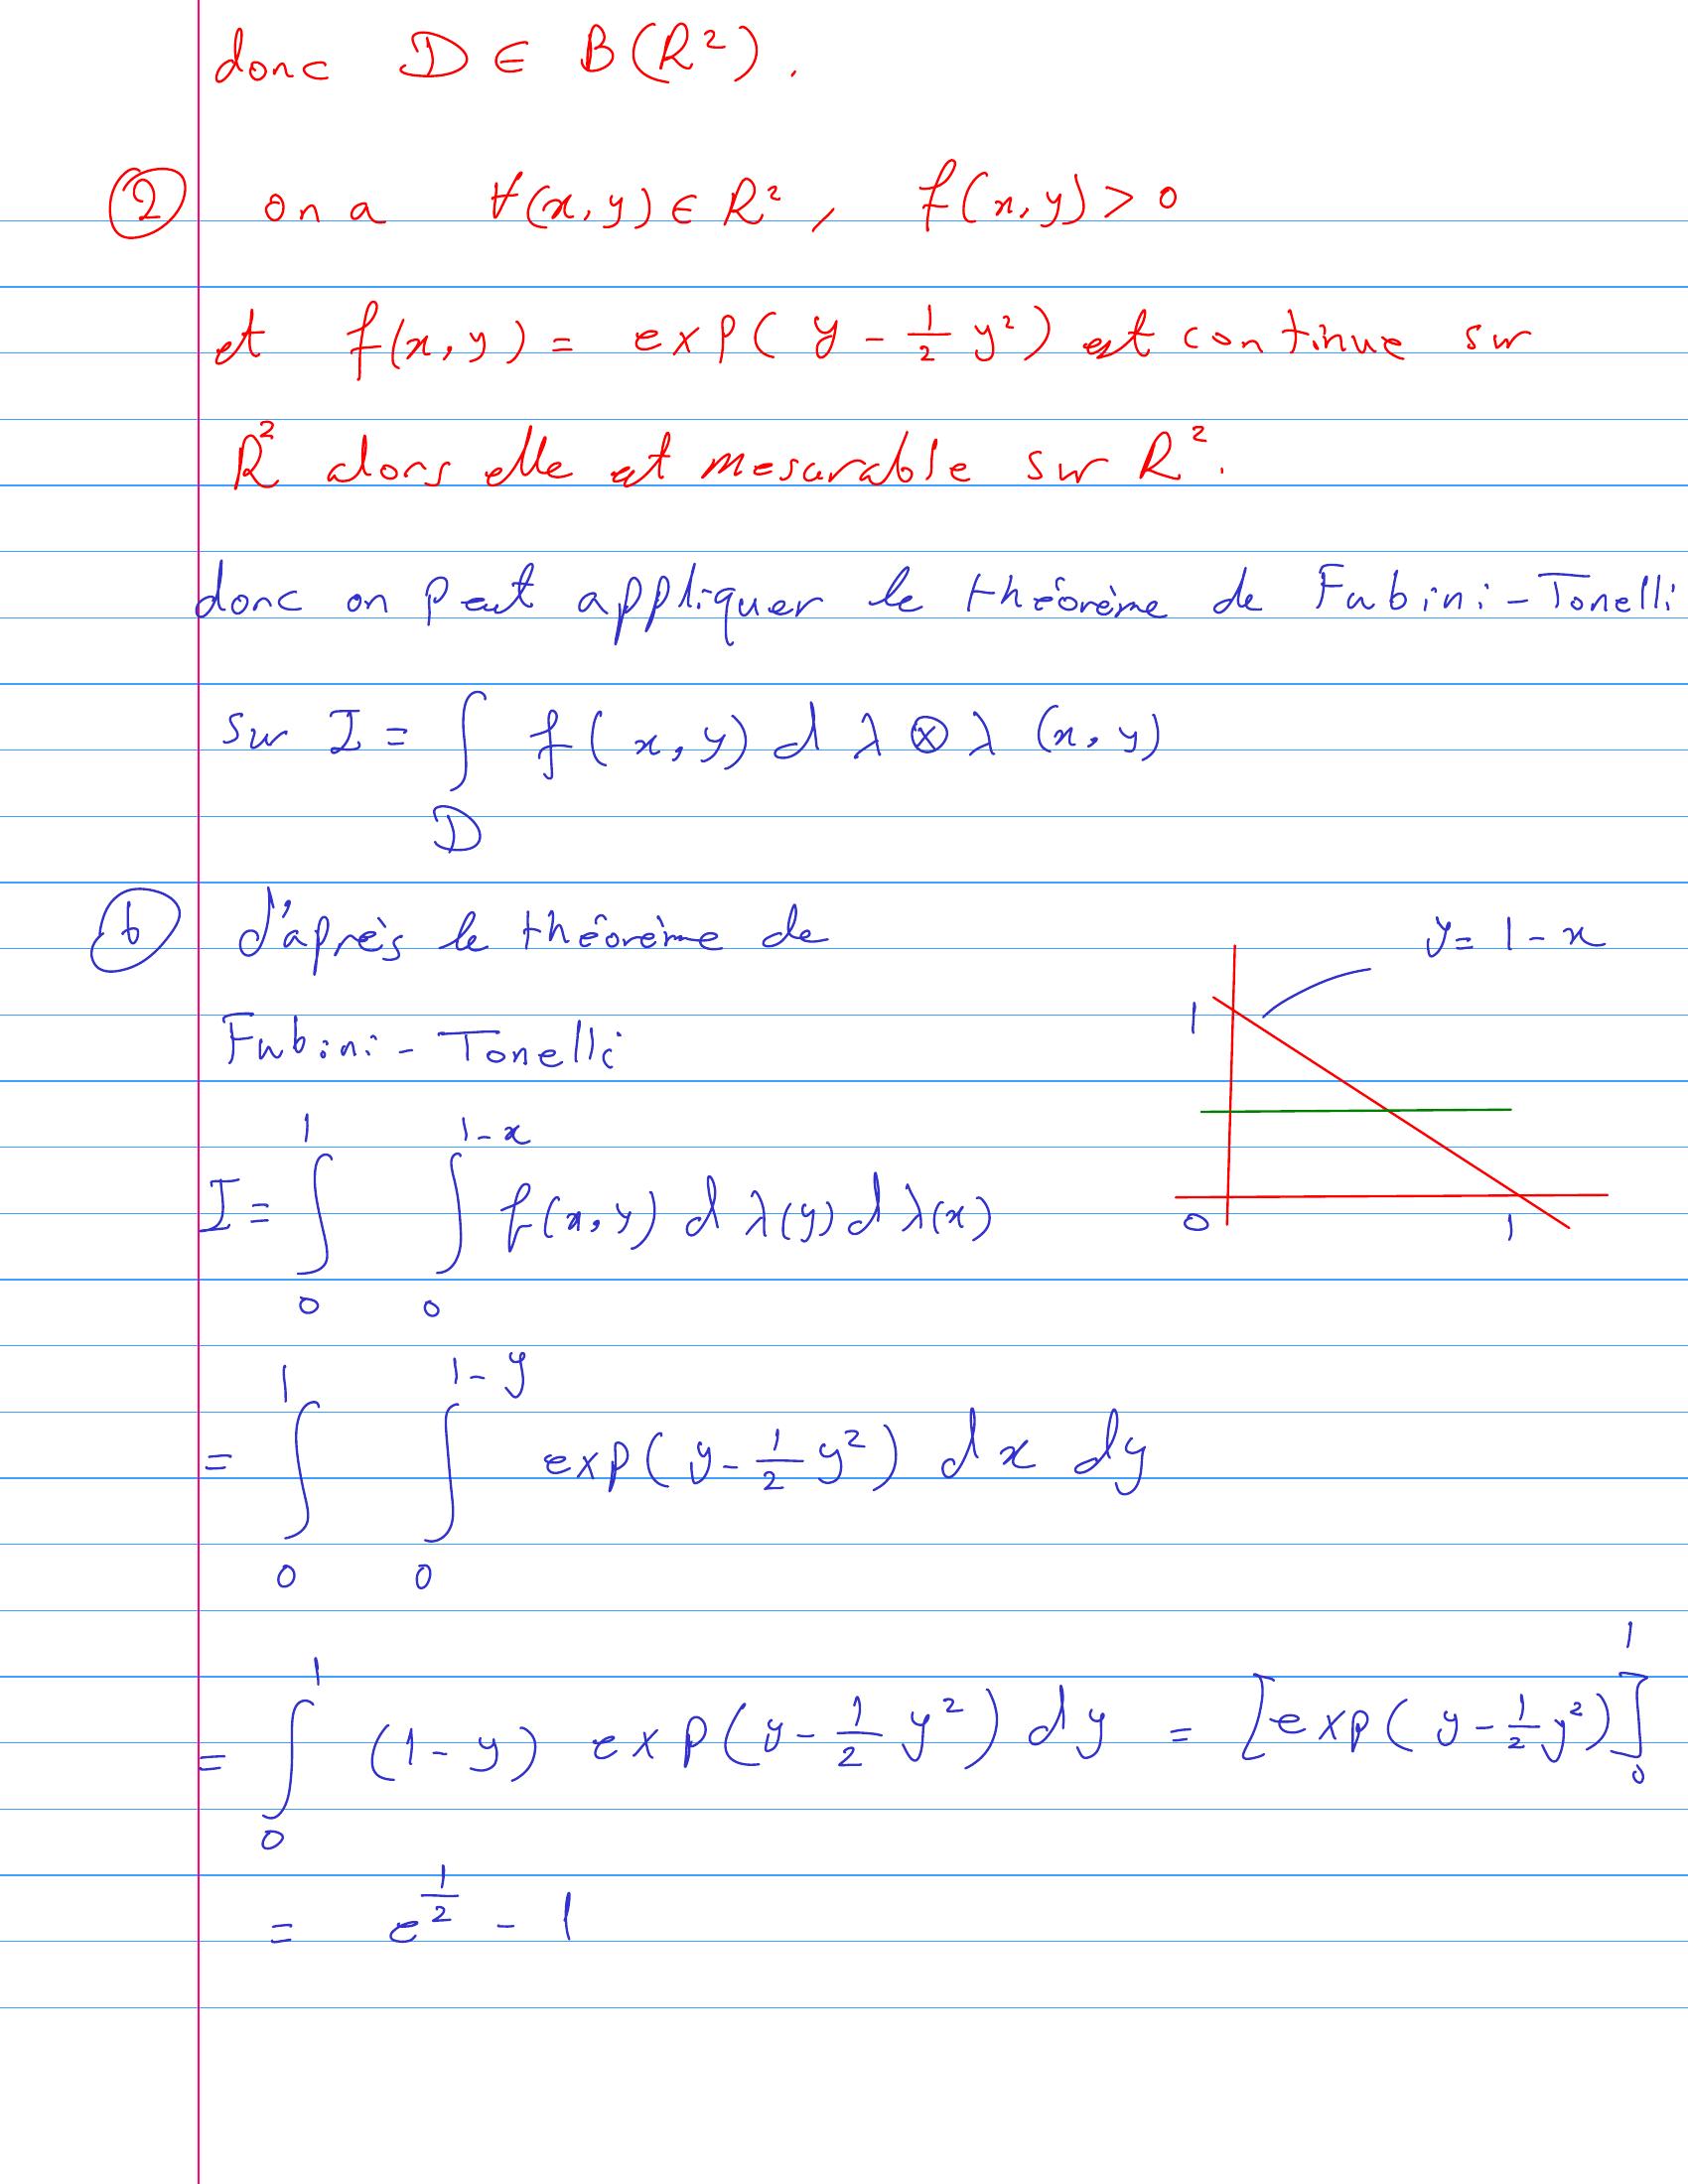 donc D ∈ B(R²).
② on a ∀(x,y) ∈ R², f(x,y) > 0
et f(x,y) = exp(y - 1/2 y²) est continue sur
R² alors elle est mesurable sur R².
donc on peut appliquer le théorème de Fubini-Tonelli
sur I = ∫_D f(x,y) d λ⊗λ (x,y)
ⓑ d'après le théorème de
Fubini-Tonelli
y = 1-x
1
0 1
I = ∫_0^1 ∫_0^{1-x} f(x,y) dλ(y) dλ(x)
= ∫_0^1 ∫_0^{1-y} exp(y - 1/2 y²) dx dy
= ∫_0^1 (1-y) exp(y - 1/2 y²) dy = [exp(y - 1/2 y²)]_0^1
= e^{1/2} - 1